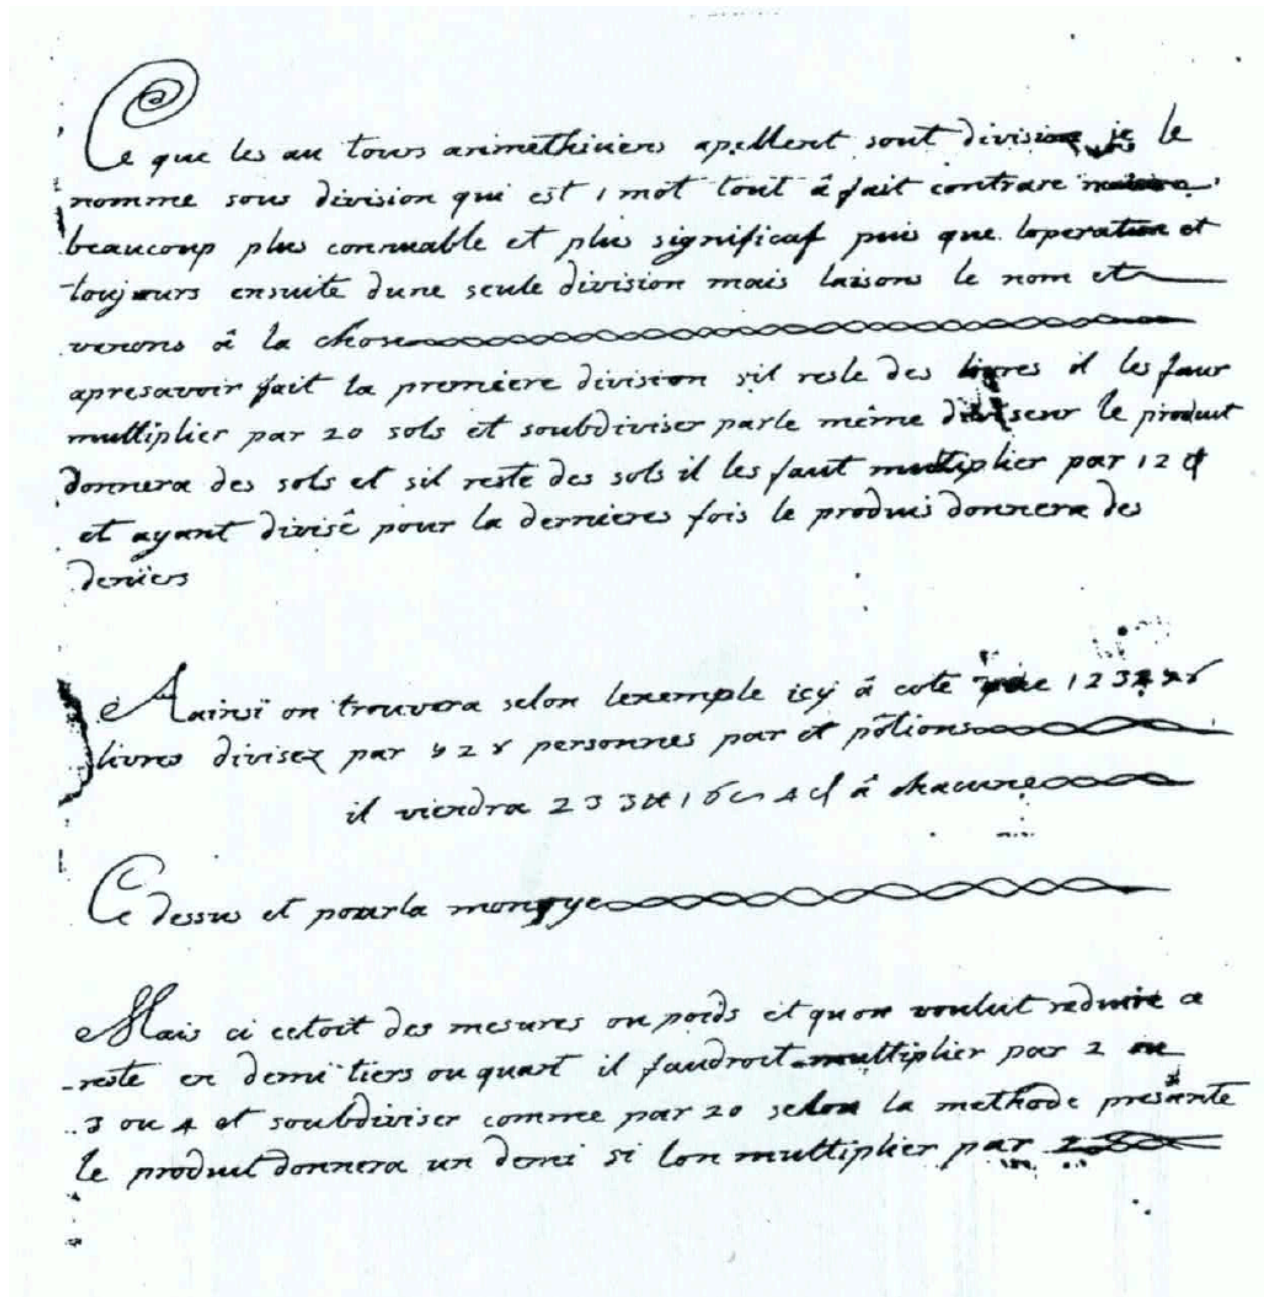 Ce que les au tours arimethiciens apellent sout division je le
nomme sous division qui est 1 mot tout â fait contrare
beaucoup plus connuable et plus significaf puis que loperation et
toujours ensuite dune seule division mais laisons le nom et
venons â la chose
apresavoir fait la premiere division sil reste des livres il les faur
multiplier par 20 sols et soubdiviser parle même diviseur le produit
donnera des sols et sil reste des sols il les faut multiplier par 12 d
et ayant divisê pour la dernieres fois le produis donnera des
deniers
Aainsi on trouvera selon lexemple icy â cote que
livres divisez par personnes par et pôtions
il viendra 233 16 4 d â chacune
Ce dessus et pourla monyye
Mais ci cetoit des mesures ou poids et quon voulut reduire ce
reste en demi tiers ou quart il faudroit multiplier par 2 ou
3 ou 4 et soubdiviser comme par 20 selon la methode presante
le produit donnera un demi si lon multiplier par 2